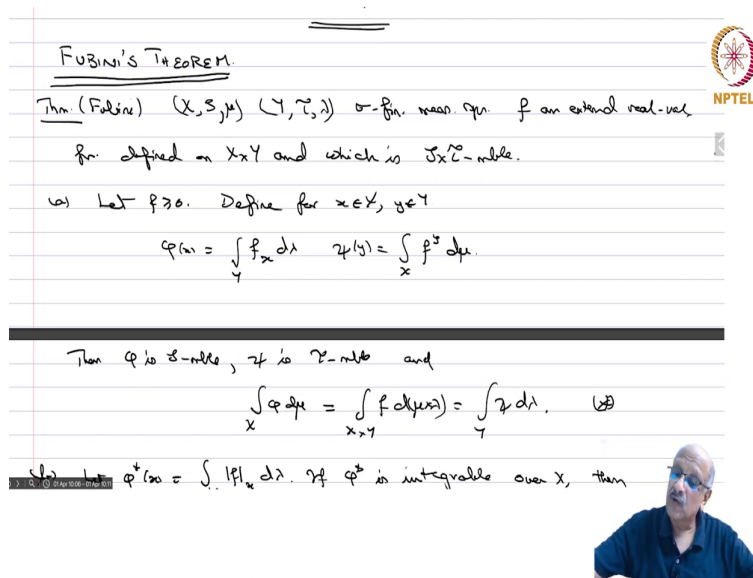 FUBINI'S THEOREM.
NPTEL
Thm. (Fubini) (X, S, μ) (Y, τ, λ) σ-fin. meas. sps. f an extend real-val.
fn. defined on X×Y and which is S×τ-mble.
(a) Let f≥0. Define for x∈X, y∈Y
φ(x) = ∫_Y f_x dλ ψ(y) = ∫_X f^y dμ.
Then φ is S-mble, ψ is τ-mble and
∫_X φ dμ = ∫_{X×Y} f d(μ×λ) = ∫_Y ψ dλ. (*)
(b) Let φ*(x) = ∫ |f|_x dλ. If φ* is integrable over X, then
01 Apr 10:06 - 01 Apr 10:11